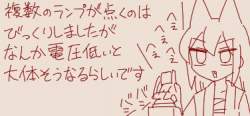 複数のランプが点くのは
びっくりしましたが
なんか電圧低いと
大体そうなるらしいです
へぇ
へぇ
へぇ
バシ
バシ